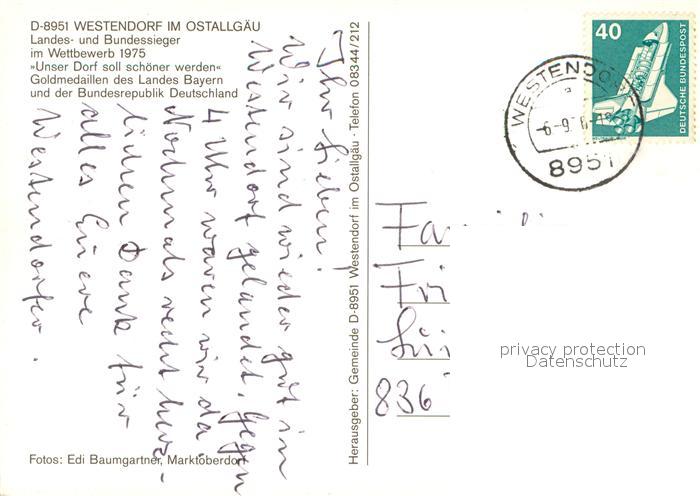 D-8951 WESTENDORF IM OSTALLGÄU
Landes- und Bundessieger
im Wettbewerb 1975
»Unser Dorf soll schöner werden«
Goldmedaillen des Landes Bayern
und der Bundesrepublik Deutschland
Ihr Lieben!
Wir sind wieder gut in
Westendorf gelandet. Gegen
4 Uhr waren wir da.
Nochmals recht herz-
lichen Dank für
alles Euere
Westendorfer.
Fotos: Edi Baumgartner, Marktoberdorf
Herausgeber: Gemeinde D-8951 Westendorf im Ostallgäu · Telefon 08344/212
40
DEUTSCHE BUNDESPOST
WESTENDORF
8951
Fa
Fri
836
privacy protection
Datenschutz